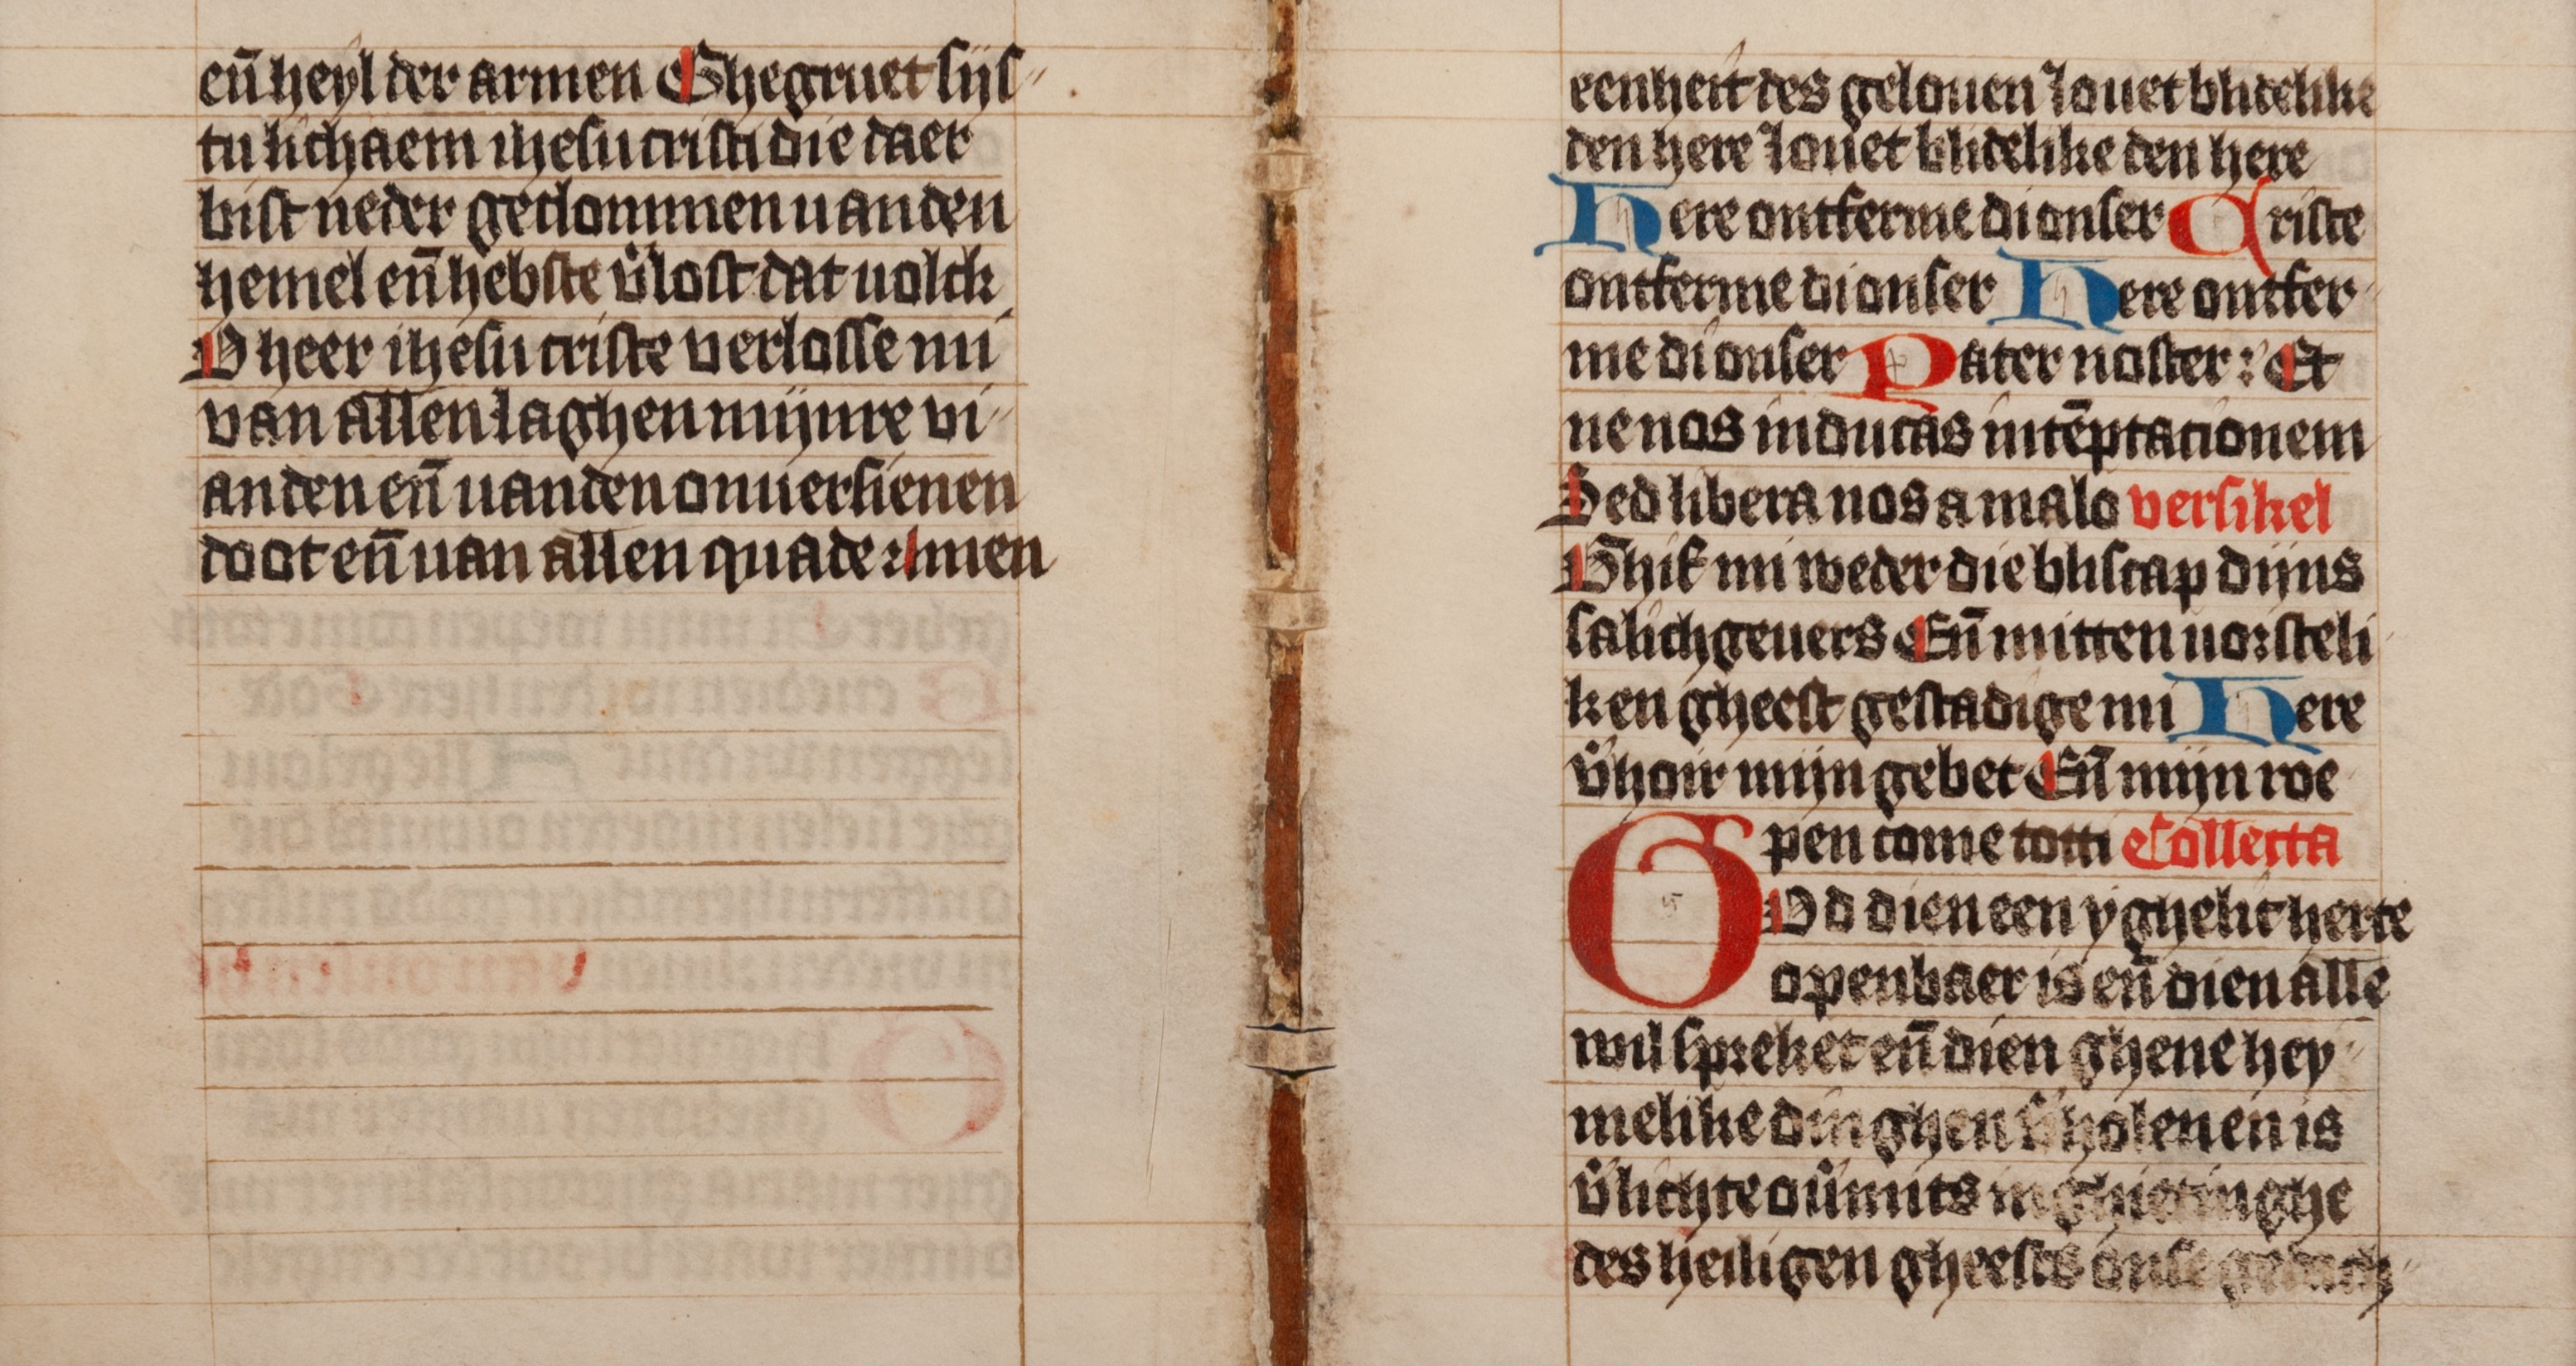 en̄ heyl der armen Ghegruet sijs
tu lichaem ihesu cristi die daer
bist neder geclommen uanden
hemel en̄ hebste v̾lost dat uolck
O heer ihesu criste verlosse mi
van allen laghen mijnre vi
anden en̄ uanden onuersienen
doot en̄ uan allen quade Amen
eenheit des gelouen louet blidelike
den here louet blidelike den here
Here ontferme di onser Criste
ontferme di onser Here ontfer
me di onser Pater noster : Et
ne nos inducas in tēptacionem
Sed libera nos a malo versikel
Ghif mi weder die bliscap dijns
salichgeuers En̄ mitten uorsteli
ken gheest gestadige mi Here
v̾hoir mijn gebet En̄ mijn roe
pen come totti Collecta
GOd dien een yghelic herte
openbaer is en̄ dien alle
wil spreket en̄ dien ghene hey
melike dinghen v̾holen en is
v̾lichte ouermits inghietinghe
des heiligen gheests onse gedach